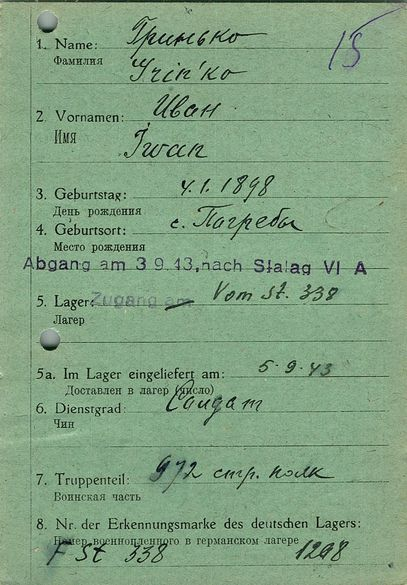 15
1. Name: Гринько
Фамилия
Grin'ko
2. Vornamen: Иван
Имя
Iwan
3. Geburtstag: 4.1.1898
День рождения
4. Geburtsort: с. Пагребы
Место рождения
Abgang am 3 9.43, nach Stalag VI A
5. Lager: Zugang am Vom St. 338
Лагер
5a. Im Lager eingeliefert am: 5-9-43
Доставлен в лагер (число)
6. Dienstgrad: Салдат
Чин
7. Truppenteil: 972 стр. полк
Воинская часть
8. Nr. der Erkennungsmarke des deutschen Lagers:
Номер военнопленного в германском лагере
F St 338 1298